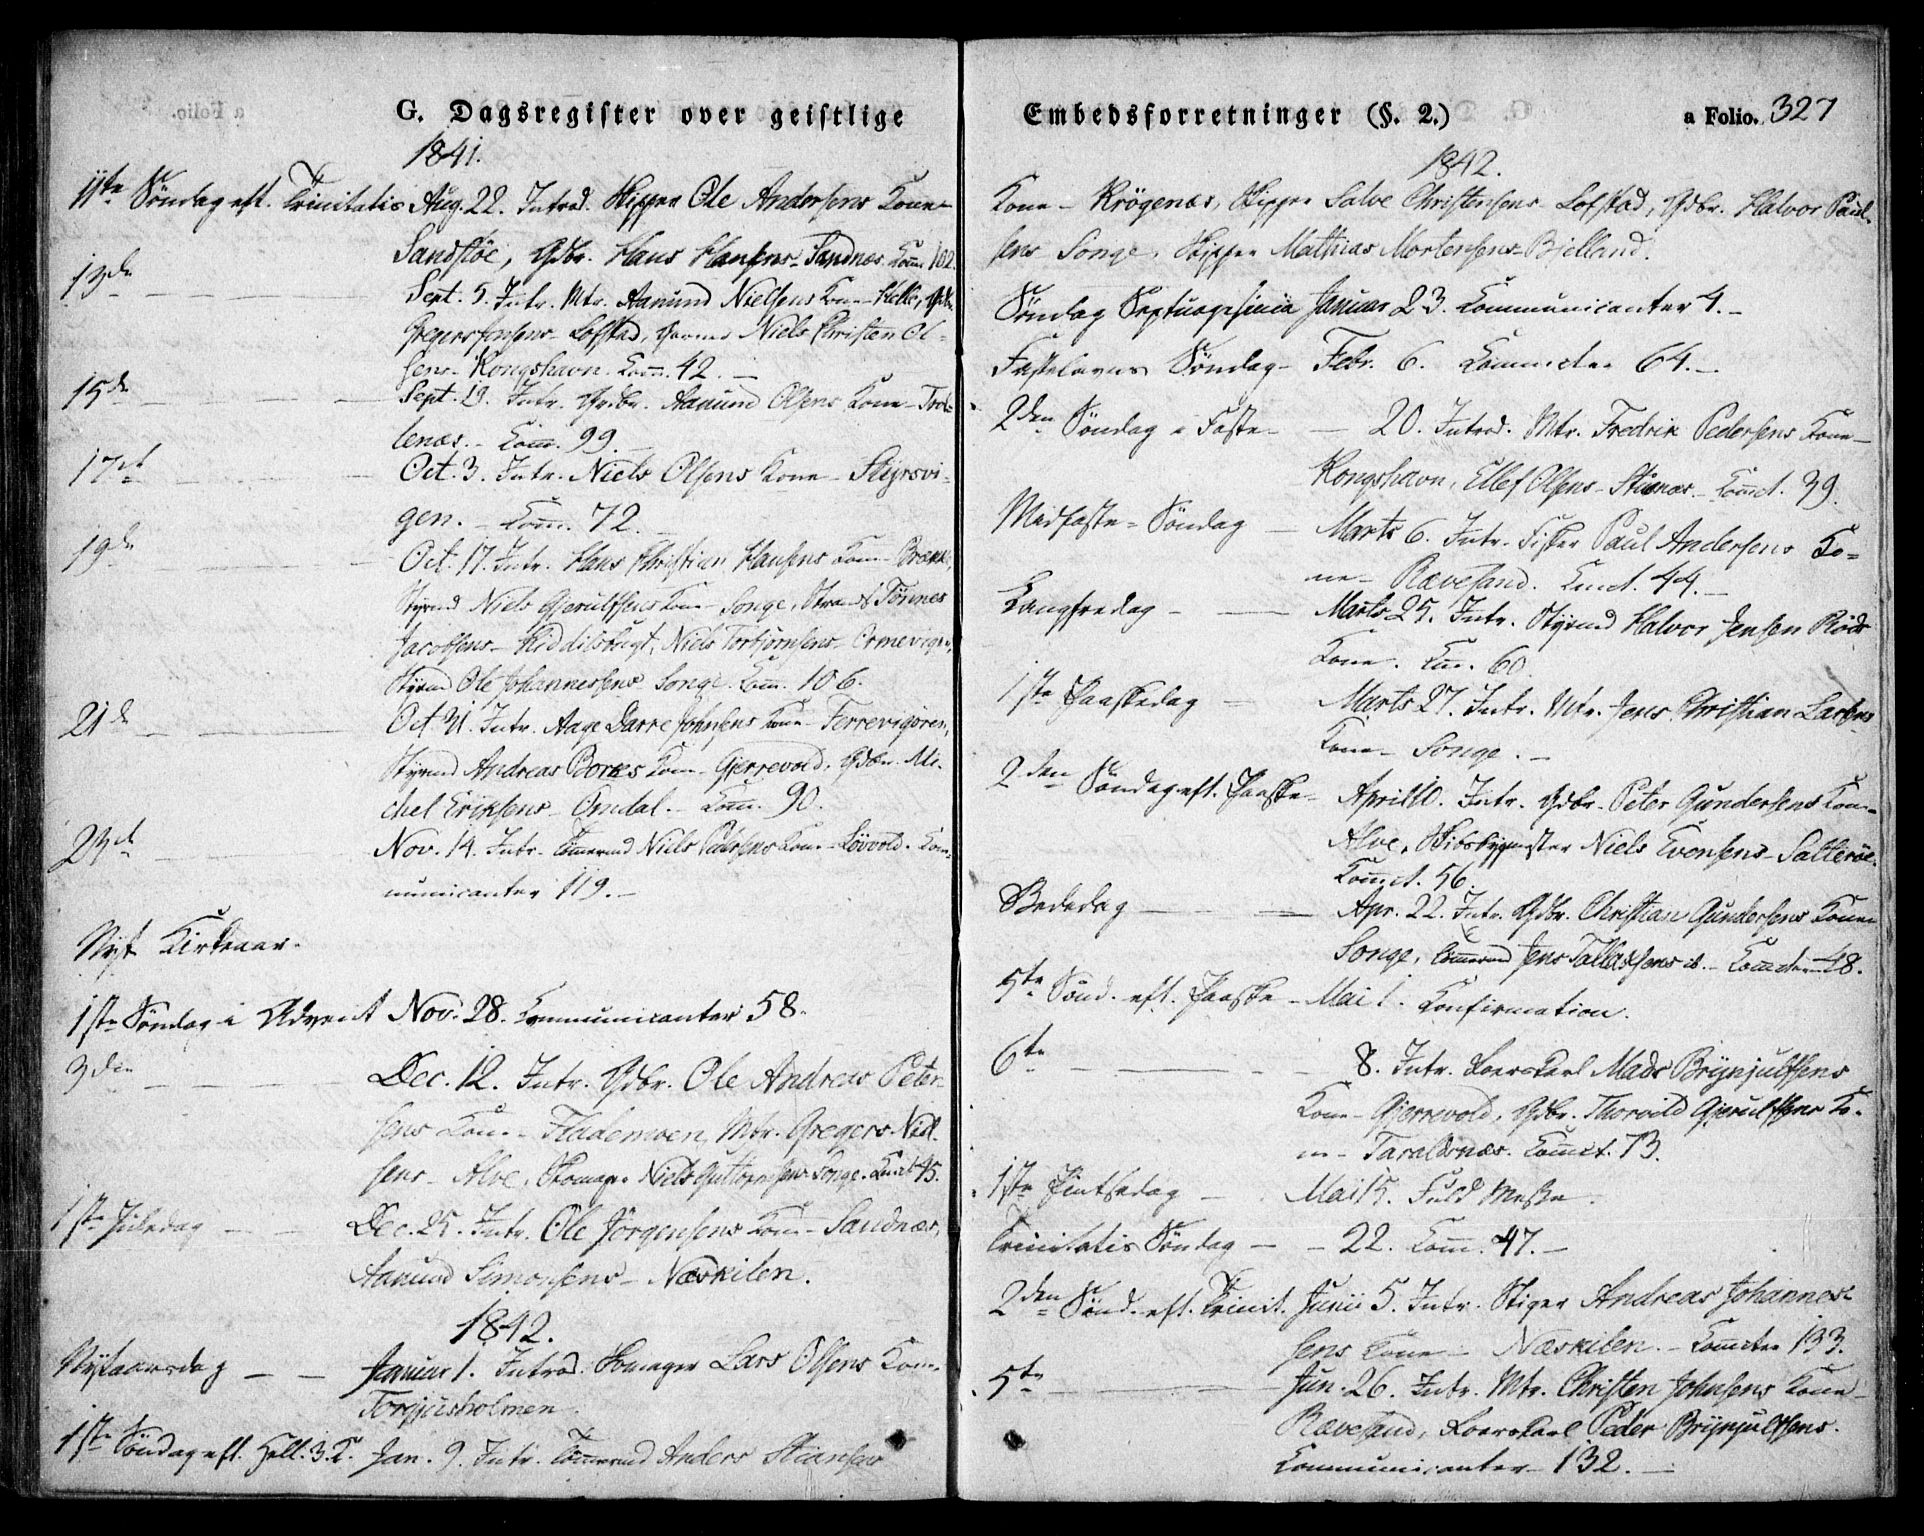 G. Dagsregister over geistlige
1841.
11te Söndag eft. Trinitatis Aug. 22. Introd. Skipper Ole Andersens Kone
Sandstöe, Gdbr. Hans Hansens - Sandnæs. Komm. 102.
13de Sept. 5. Intr. Mtr. Aanund Nielsens Kone - Kelle,
Gregers Jensens - Lofstad, Niels Christen Ol-
sens - Kongshavn. Komm. 42. -
15de Sept. 19. Intr. Gdbr. Aanund Olsens Kone -
lenæs. - Komm. 99. -
17de Oct. 3. Intr. Niels Olsens Kone - Styrsvi-
gen. - Komm. 72.
19de Oct. 17. Intr. Hans Christian Hansens Kone -
Styrmd Niels Gjerulfsens Kone - Songe, Tönnes
Jacobsens - Kiddelsbugt, Niels Torbjörnsens - Ormevigen,
Styrmd Ole Johannessens Songe. Komm. 106.
21de Oct 31. Intr. Aage Darre Johnsens Kone - Ferrevigören,
Styrmd Andreas Bories Kone - Gjerrevold, Gdbr. Mi-
chel Eriksens - Omdal. - Komm. 90.
23de Nov. 14. Intr. Tömermd Niels Pedersens Kone - Lövvold. Kom-
municanter 119. -
Nyt Kirkeaar.
1ste Söndag i Advent Nov. 28. Communicanter 58.
3die Dec. 12. Intr. Gdbr. Ole Andreas Peter-
sens Kone - Flademoen, Mtr. Gregers Niel-
sens - Alve, Skomager Niels Guttormsens Songe. Komct 45.
1ste Juledag Dec. 25. Intr. Ole Jörgensens Kone - Sandnæs,
Aanund Simonsens - Næskilen.
1842.
Nytaarsdag Januar 1. Introd. Skomager Lars Olsens Kone
Torjusholmen.
1ste Söndag eft. Hell. 3. K. Jan. 9. Intr. Tömermd Anders Stiansens
Embedsforretninger (§. 2.)
a Folio. 327
1842.
Kone - Krögenæs, Skipper Salve Christensens - Lofstad, Gdbr. Halvor Paul-
sens Songe, Skipper Mathias Mortensens - Bjelland.
Söndag Septuagesima Januar 23. Communicanter 4. -
Fastelavns Söndag - Febr. 6. Commcter 64. -
2den Söndag i Faste - - 20. Introd. Mtr. Fredrik Pedersens Kone -
Kongshavn, Ellef Olsens - Stuenæs. - Komct. 39.
Midfaste-Söndag - Marts 6. Intr. Fisker Paul Andersens Ko-
ne - Rævesand. Kmct. 44. -
Langfredag - Marts 25. Intr. Styrmd Halvor Jensen Röds
Kone. Km. 60.
1ste Paaskedag - Marts 27. Intr. Mtr. Jens Christian Larsens
Kone - Songe. -
2den Söndag eft. Paaske - April 10. Intr. Gdbr. Peter Gundersens Kone
Alve, Skibsbygmester Niels Evensens - Salteröe.
Komct. 56.
Bededag - Apr. 22. Intr. Gdbr. Christian Gundersens Kone
Songe, Tömermd Jens Tallaksens ib. - Komcter 48.
5te Sönd. eft. Paaske - Mai 1. Konfirmation.
6te - 8. Intr. Loerskarl Mads Brynjulfsens
Kone - Gjerrevold, Gdbr. Thorvild Gjerulfsens Ko-
ne - Taraldsnæs. Komct. 73.
1ste Pintsedag - Mai 15. Fuld Messe.
Trinitatis Söndag - - 22. Komm. 47. -
2den Sönd. eft. Trinit. Junii 5. Intr. Stiger Andreas Johannes-
sens Kone - Næskilen. - Komcter 133.
5te Jun. 26. Intr. Mtr. Christen Johnsens Kone
Rævesand, Loerskarl Peder Brynjulfsens.
Communicanter - 132. -